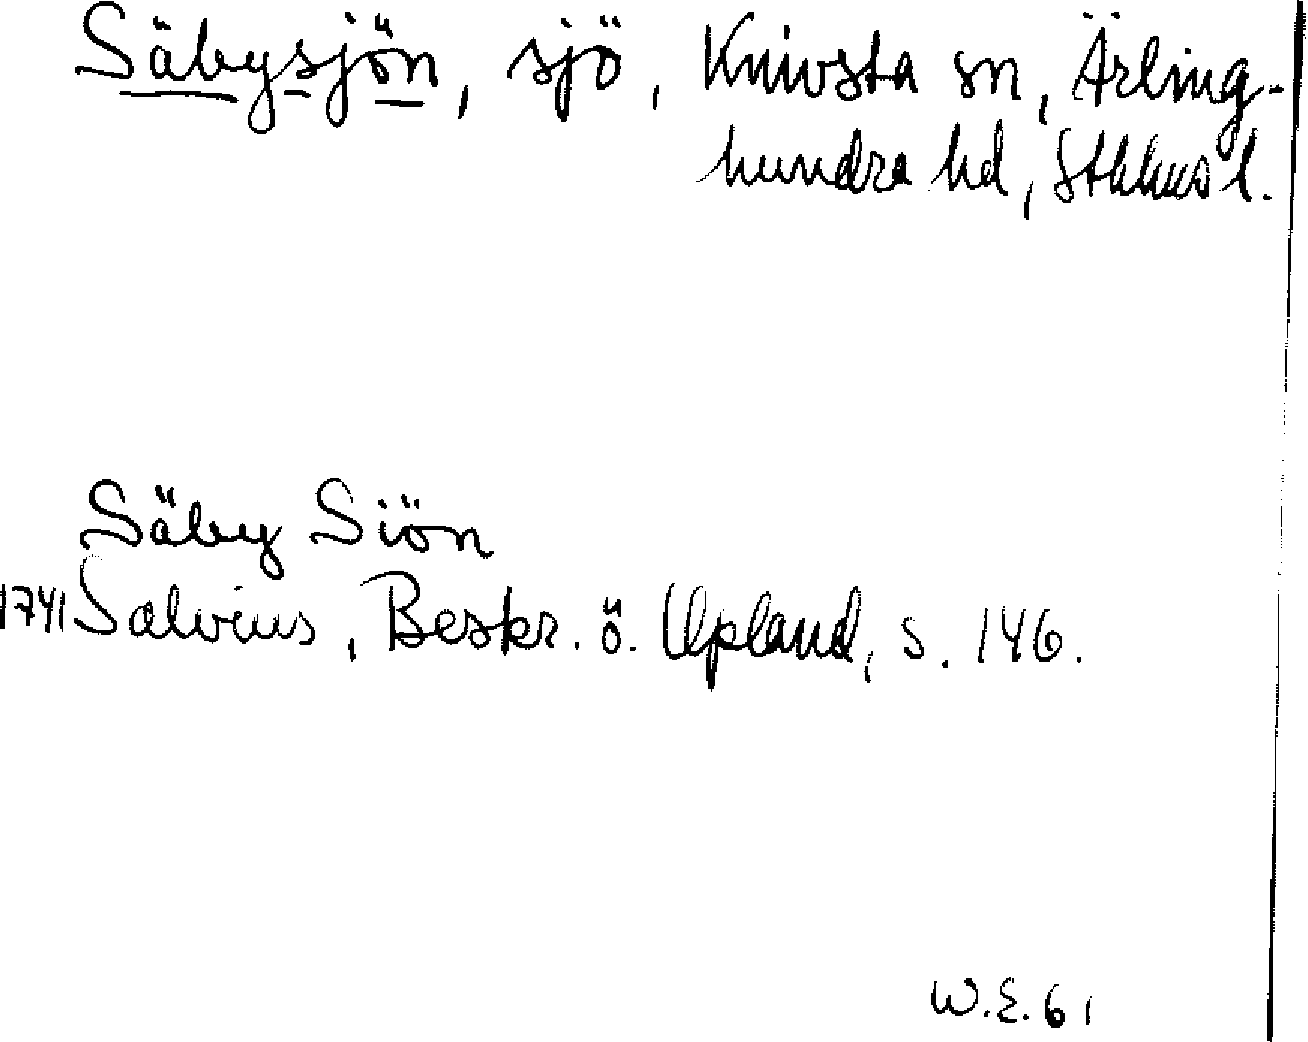 Säbysjön, sjö, Knivsta sn, Ärling-
hundra hd, Sthlms l.
Säby Siön
1741 Salvius, Beskr. ö. Upland, s. 146.
W.E. 61